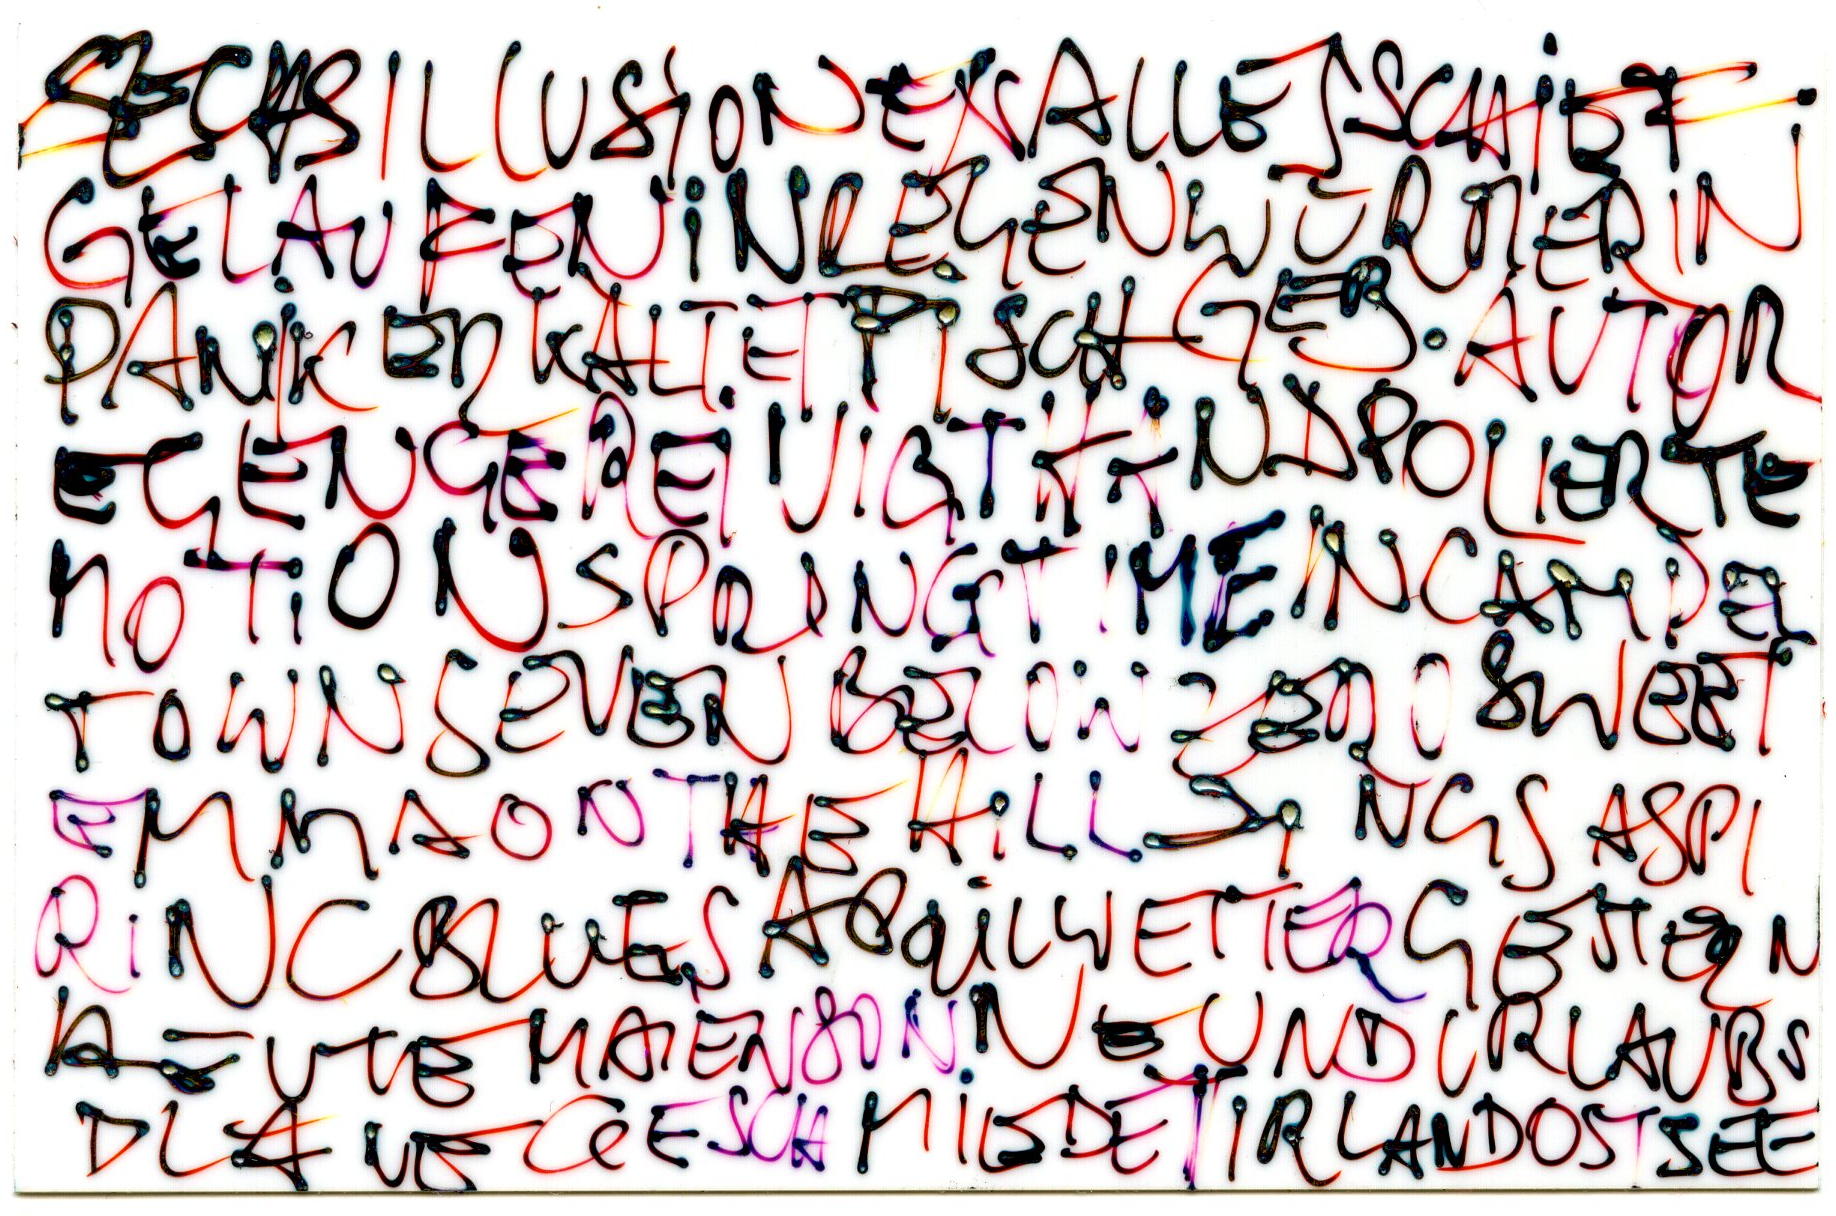 SECHS ILLUSIONEN ALLES SCHIEF
GELAUFEN IN REGENWÜRMER IN
PANIK ER KALTET TISCH GEB. AUTOR
EGEN GEREINIGT HANDPOLIERTE
MOTION SPRINGTIME IN CAMDEN
TOWN SEVEN BELOW ZERO SWEET
EMMA ON THE HILL SINGS ASPI
RIN C BLUES APRILWETTER GESTERN
HEUTE MAIENSONNE UND URLAUBS
PLÄNE IRLAND OSTSEE